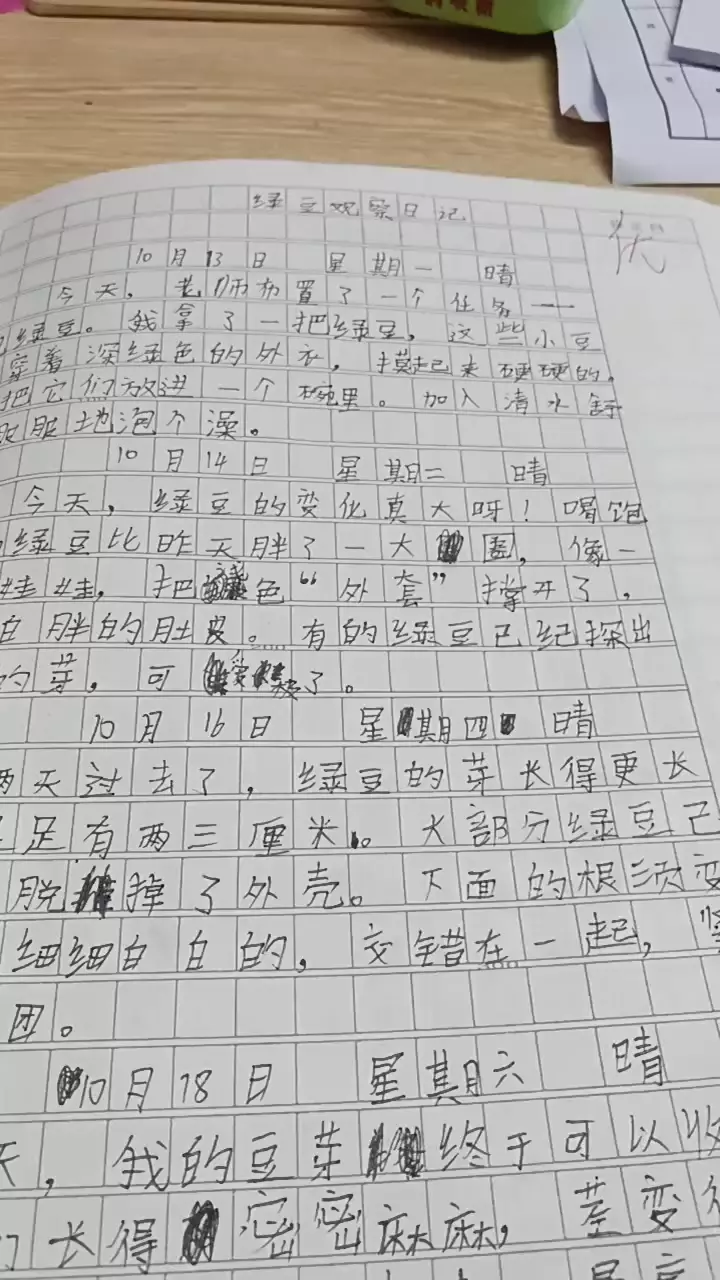 绿豆观察日记
优
10月13日 星期一 晴
今天，老师布置了一个任务——
绿豆。我拿了一把绿豆，这些小豆
穿着深绿色的外衣，摸起来硬硬的。
把它们放进一个碗里。加入清水舒
服服地泡个澡。
10月14日 星期二 晴
今天，绿豆的变化真大呀！喝饱
绿豆比昨天胖了一大圈，像一
娃娃，把绿色“外套”撑开了，
白胖的肚皮。有的绿豆已经探出
的芽，可爱极了。
10月16日 星期四 晴
两天过去了，绿豆的芽长得更长
足有两三厘米。大部分绿豆已
脱掉了外壳。下面的根须变
细细白白的，交错在一起，紧
团。
10月18日 星期六 晴
天，我的豆芽终于可以收
们长得密密麻麻，茎变得